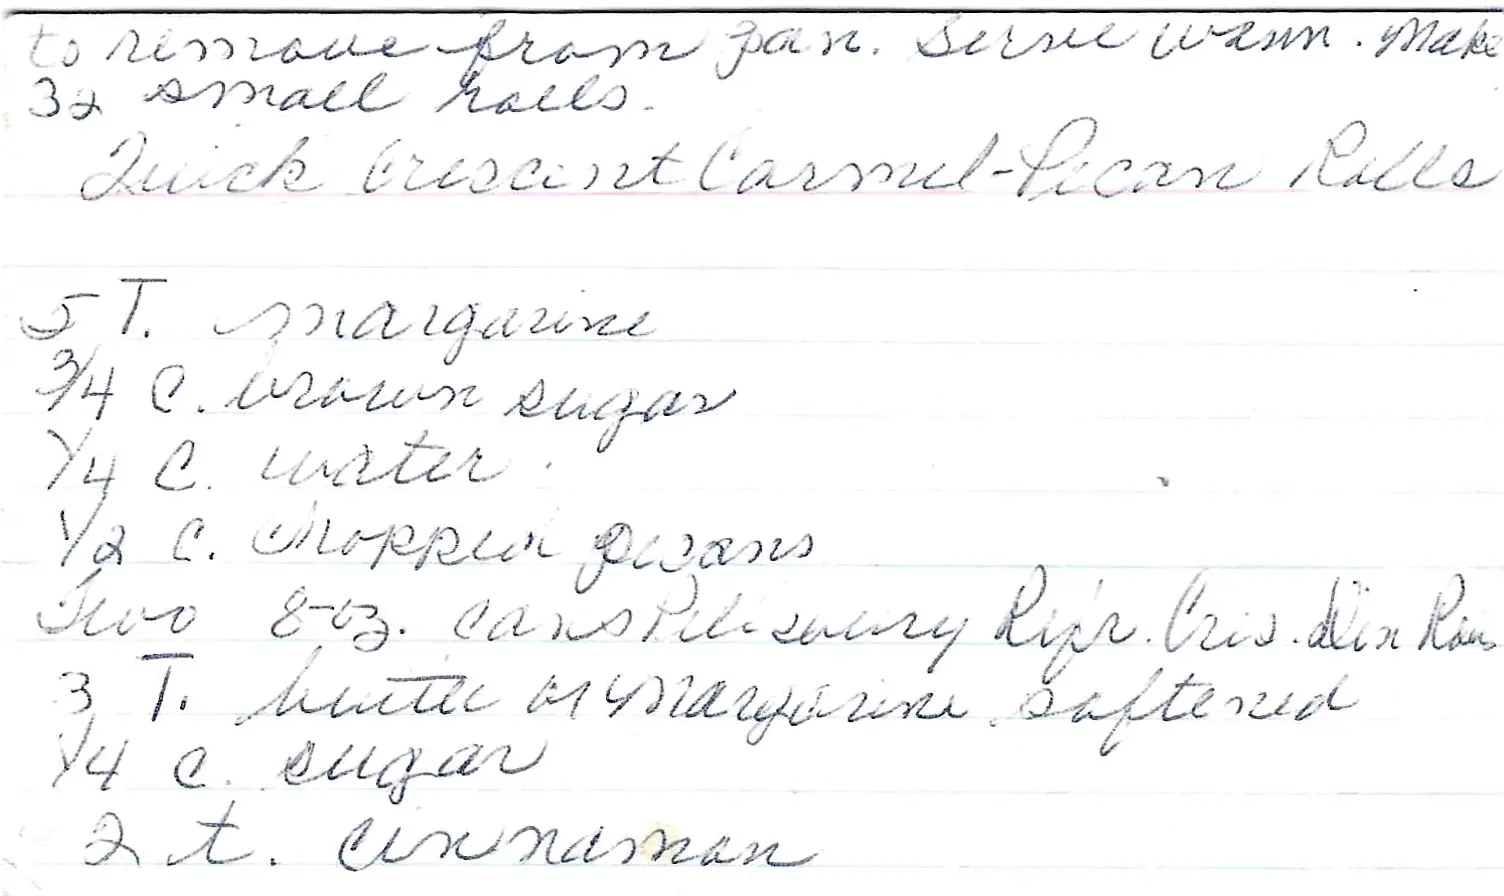 to remove from pan. Serve warm. Make
32 small rolls.
Quick Crescent Carmel-Pecan Rolls
5 T. margarine
3/4 C. brown sugar
1/4 C. water
1/2 C. chopped pecans
Two 8-oz. cans Pillsbury Refr. Cres. Din Rolls
3 T. butter or margarine softened
1/4 c. sugar
2 t. cinnamon